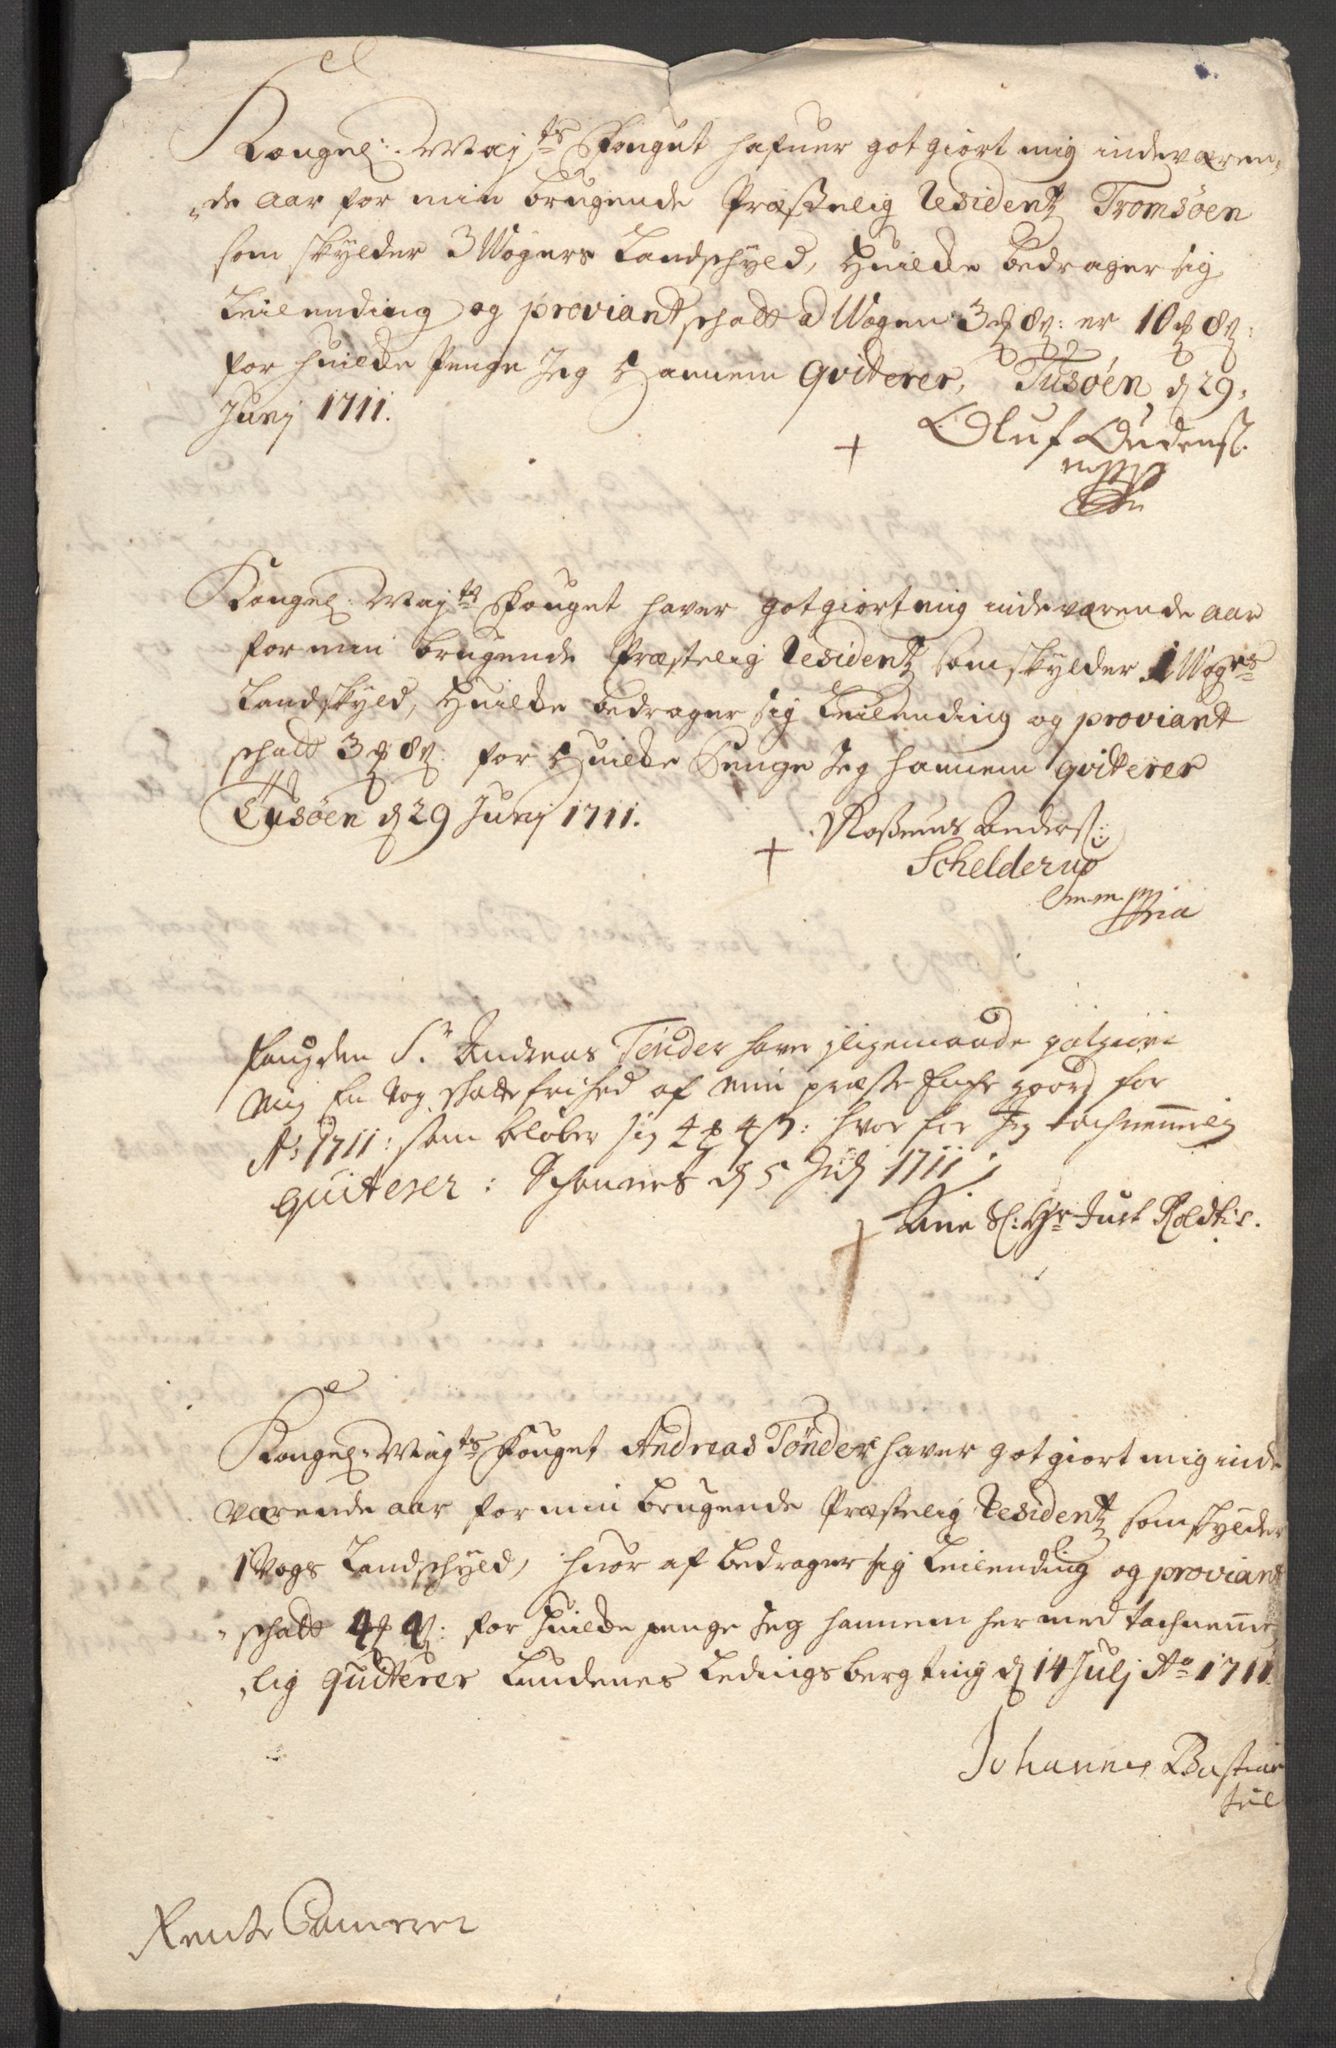 Kongel: Maj:ts Fouget hafuer gotgiort mig indeværen-
-de aar for min brugende Præstelig Residentz Tromsøen
som skylder 3 Wogers Landschyld, Huilcke bedrager sig
Leilending og proviant schatt a Wogen 3 ₰ 8 ß: er 10 ₰ 8 ß:
for huilcke Penge Jeg Hannem qviterer, Tusøen d 29
Junj 1711.
Oluf Audenss:
mpp
Kongel: Maj:ts Fouget haver gotgiort mig indeværende aar
for min brugende Præstelig Residentz som skylder 1 Wogrs
Landskyld, Huilcke bedrager sig Leilending og proviant
schatt 3 ₰ 8 ß: for Huilcke Penge Jeg hannem qviterer
Tusøen d 29 Junj 1711.
Rasmus Anderss:
Schelderup
mpria
Fougden Sr Andreas Tønder haver jligemaade gotgiort
Mig En vog schatte frihed af min præste Enche goord for
Ao 1711: som beløber sig 4 ₰ 4 ß: hvor for Jeg tachnemmelig
quiterer: d 5 Julj 1711
Sl: Hr Just
Kongel: Majts Fouget Andreas Tønder haver gotgiort mig inde
værende aar for min brugende Præstelig Residentz som skylder
1 Vogs Landschyld, huor af bedrager sig Leilending og proviant
-schatt 4 ₰ 4 ß: for huilcke penge Jeg hannem her med tachnemme
-lig quiterer Lundenes Ledingsberg ting d 14 Julj Ao 1711
Johannes Bastian
Rente Cammerer